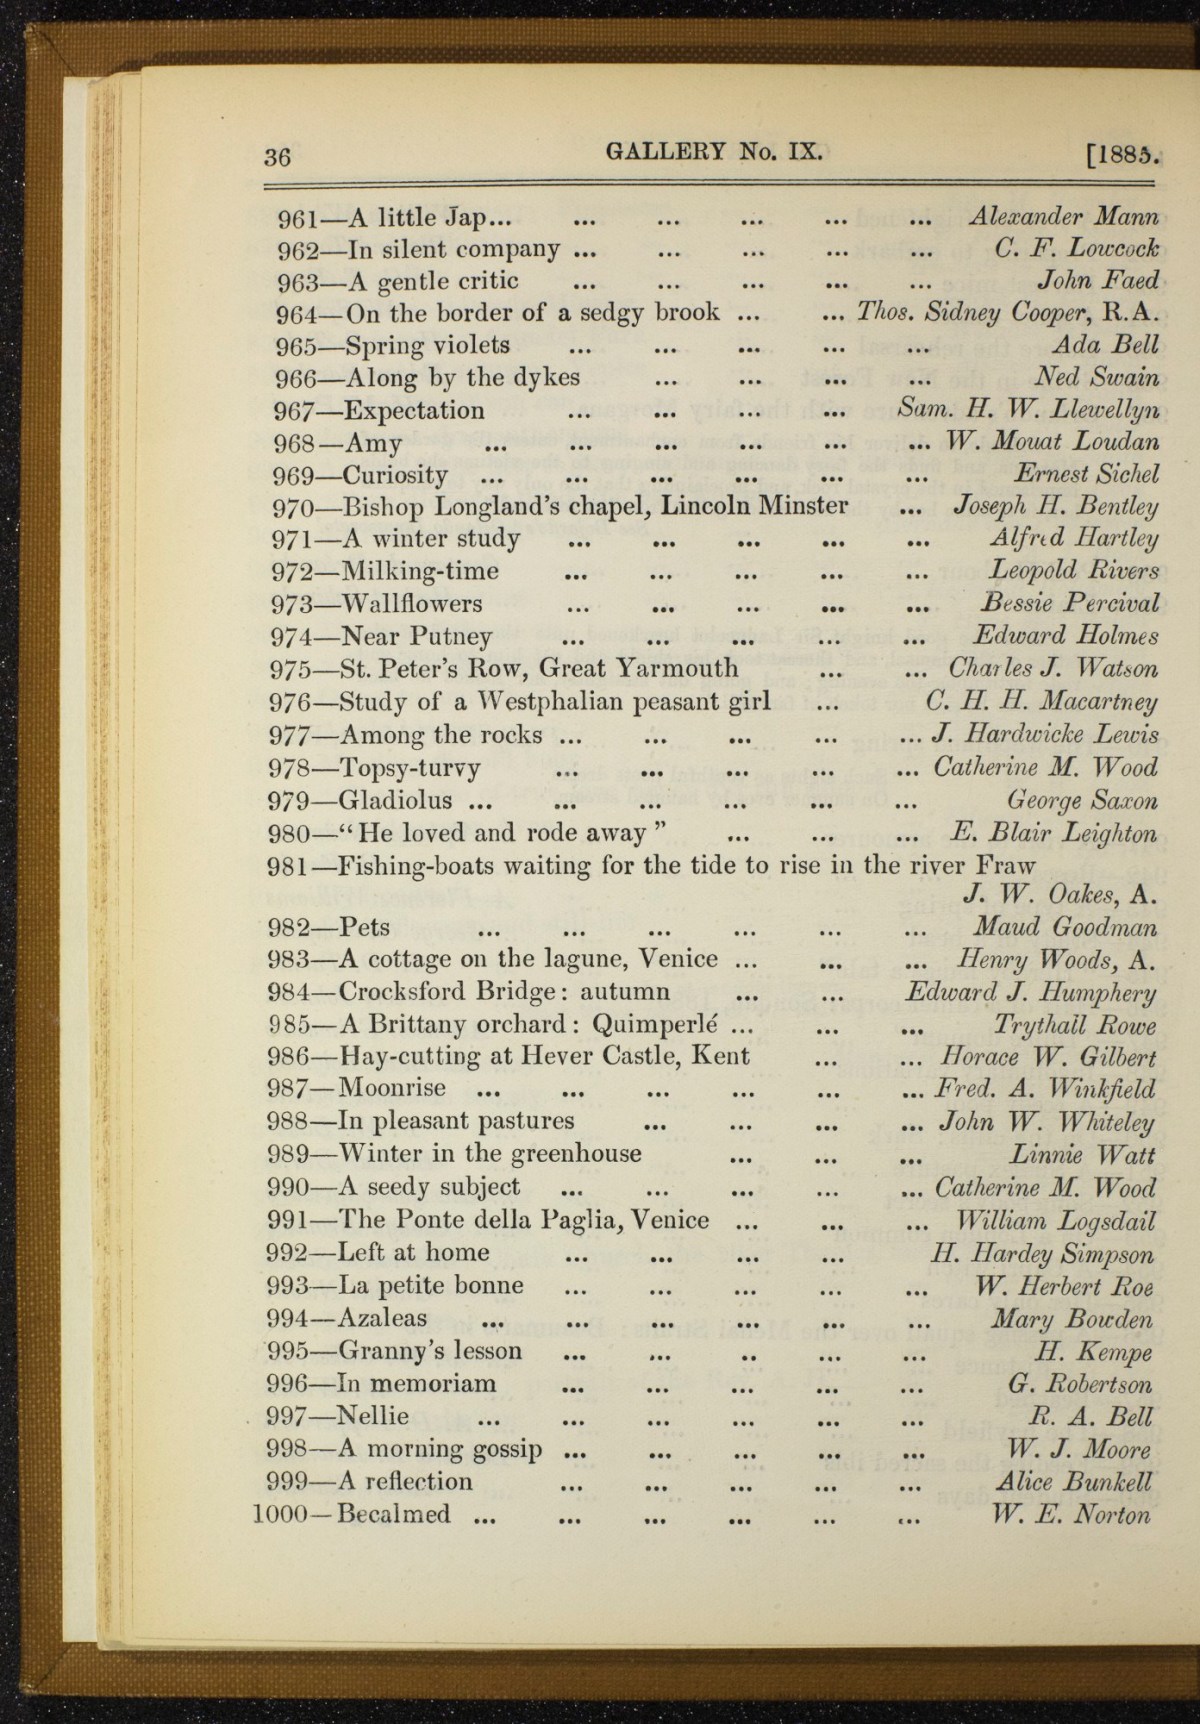 36 GALLERY No. IX. [1885.
961—A little Jap... ... ... ... ... ... Alexander Mann
962—In silent company ... ... ... ... ... C. F. Lowcock
963—A gentle critic ... ... ... ... ... John Faed
964—On the border of a sedgy brook ... ... Thos. Sidney Cooper, R.A.
965—Spring violets ... ... ... ... ... Ada Bell
966—Along by the dykes ... ... ... ... Ned Swain
967—Expectation ... ... ... ... Sam. H. W. Llewellyn
968—Amy ... ... ... ... ... ... W. Mouat Loudan
969—Curiosity ... ... ... ... ... ... Ernest Sichel
970—Bishop Longland's chapel, Lincoln Minster ... Joseph H. Bentley
971—A winter study ... ... ... ... ... Alfred Hartley
972—Milking-time ... ... ... ... ... Leopold Rivers
973—Wallflowers ... ... ... ... ... Bessie Percival
974—Near Putney ... ... ... ... ... Edward Holmes
975—St. Peter's Row, Great Yarmouth ... ... Charles J. Watson
976—Study of a Westphalian peasant girl ... C. H. H. Macartney
977—Among the rocks ... ... ... ... ... J. Hardwicke Lewis
978—Topsy-turvy ... ... ... ... ... Catherine M. Wood
979—Gladiolus ... ... ... ... ... ... George Saxon
980—“He loved and rode away” ... ... ... E. Blair Leighton
981—Fishing-boats waiting for the tide to rise in the river Fraw
J. W. Oakes, A.
982—Pets ... ... ... ... ... ... Maud Goodman
983—A cottage on the lagune, Venice ... ... ... Henry Woods, A.
984—Crocksford Bridge: autumn ... ... Edward J. Humphery
985—A Brittany orchard: Quimperlé ... ... ... Trythall Rowe
986—Hay-cutting at Hever Castle, Kent ... ... Horace W. Gilbert
987—Moonrise ... ... ... ... ... ... Fred. A. Winkfield
988—In pleasant pastures ... ... ... ... John W. Whiteley
989—Winter in the greenhouse ... ... ... Linnie Watt
990—A seedy subject ... ... ... ... ... Catherine M. Wood
991—The Ponte della Paglia, Venice ... ... ... William Logsdail
992—Left at home ... ... ... ... H. Hardey Simpson
993—La petite bonne ... ... ... ... ... W. Herbert Roe
994—Azaleas ... ... ... ... ... ... Mary Bowden
995—Granny's lesson ... ... .. ... ... H. Kempe
996—In memoriam ... ... ... ... ... G. Robertson
997—Nellie ... ... ... ... ... ... R. A. Bell
998—A morning gossip ... ... ... ... ... W. J. Moore
999—A reflection ... ... ... ... ... Alice Bunkell
1000—Becalmed ... ... ... ... ... ... W. E. Norton